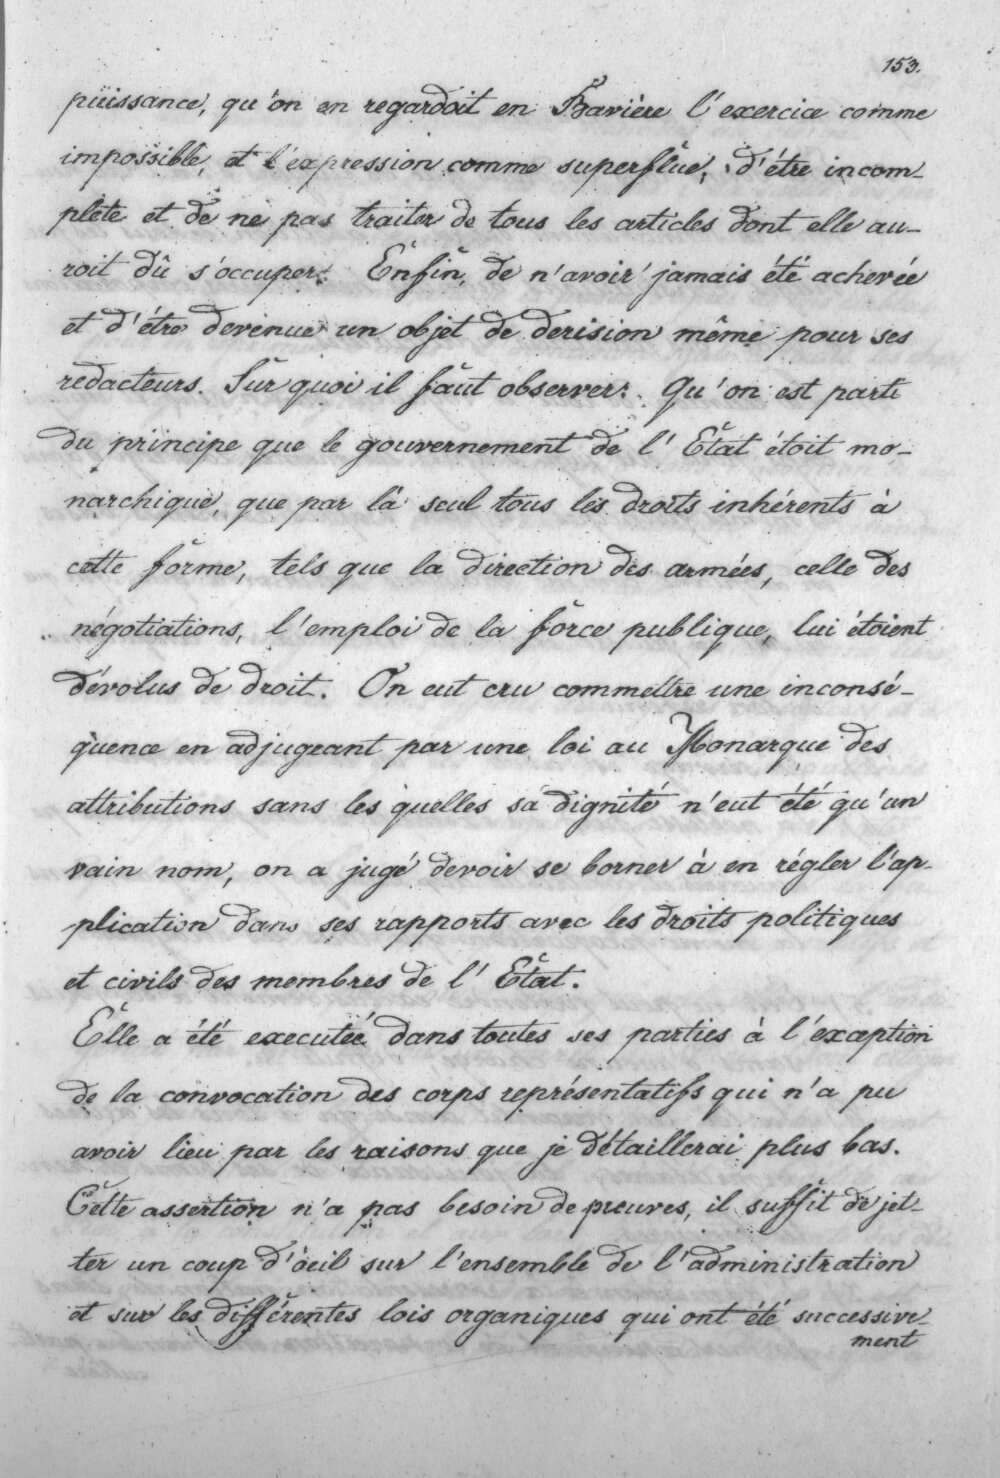 153.
puissance, qu'on en regardoit en Bavière l'exercice comme
impossible, et l'expression comme superflue; d'être incom-
plète et de ne pas traiter de tous les articles dont elle au-
roit dû s'occuper. Enfin, de n'avoir jamais été achevée
et d'être devenue un objet de derision même pour ses
redacteurs. Sur quoi il faut observer: Qu'on est parti
du principe que le gouvernement de l'Etat étoit mo-
narchique, que par là seul tous les droits inhérents à
cette forme, tels que la direction des armées, celle des
négotiations, l'emploi de la force publique, lui étoient
dévolus de droit. On eut cru commettre une inconsé-
quence en adjugeant par une loi au Monarque des
attributions sans les quelles sa dignité n'eut été qu'un
vain nom, on a jugé devoir se borner à en régler l'ap-
plication dans ses rapports avec les droits politiques
et civils des membres de l'Etat.
Elle a été executée dans toutes ses parties à l'exception
de la convocation des corps représentatifs qui n'a pu
avoir lieu par les raisons que je détaillerai plus bas.
Cette assertion n'a pas besoin de preuves, il suffit de jet-
ter un coup d'oeil sur l'ensemble de l'administration
et sur les différentes lois organiques qui ont été successive-
ment